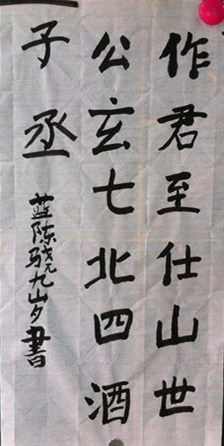 作君至仕山世
公玄七北四酒
子丞
蓝陈骁九岁書